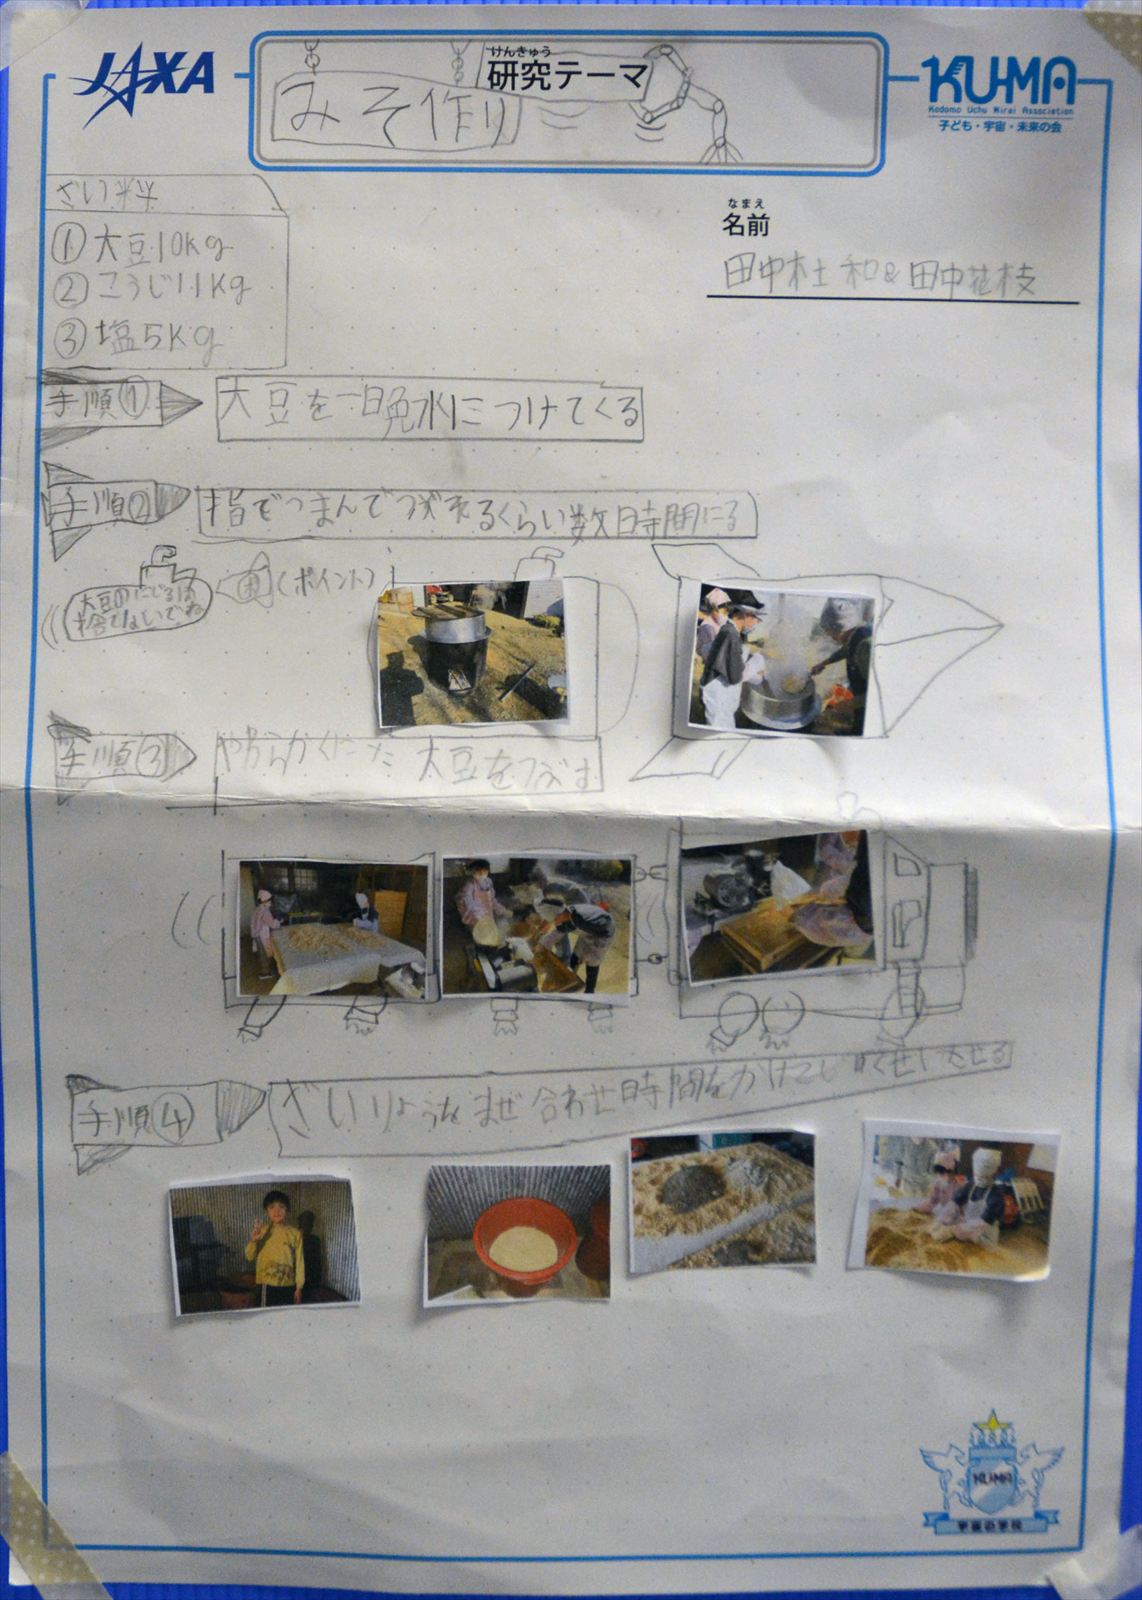 JAXA
けんきゅう
研究テーマ
みそ作り
KU-MA
Kodomo Uchu Mirai Association
子ども・宇宙・未来の会
なまえ
名前
田中杜和&田中花枝
ざい料
①大豆10kg
②こうじ11kg
③塩5kg
手順①
大豆を一晩水につけてくる
手順②
指でつまんでつぶれるくらい数時間にる
(ポイント)
大豆のにじるは
捨てないでね
手順③
やわらかくにた大豆をつぶす
手順④
ざいりょうをまぜ合わせ時間をかけてじゅくせいさせる
KU-MA
宇宙の学校